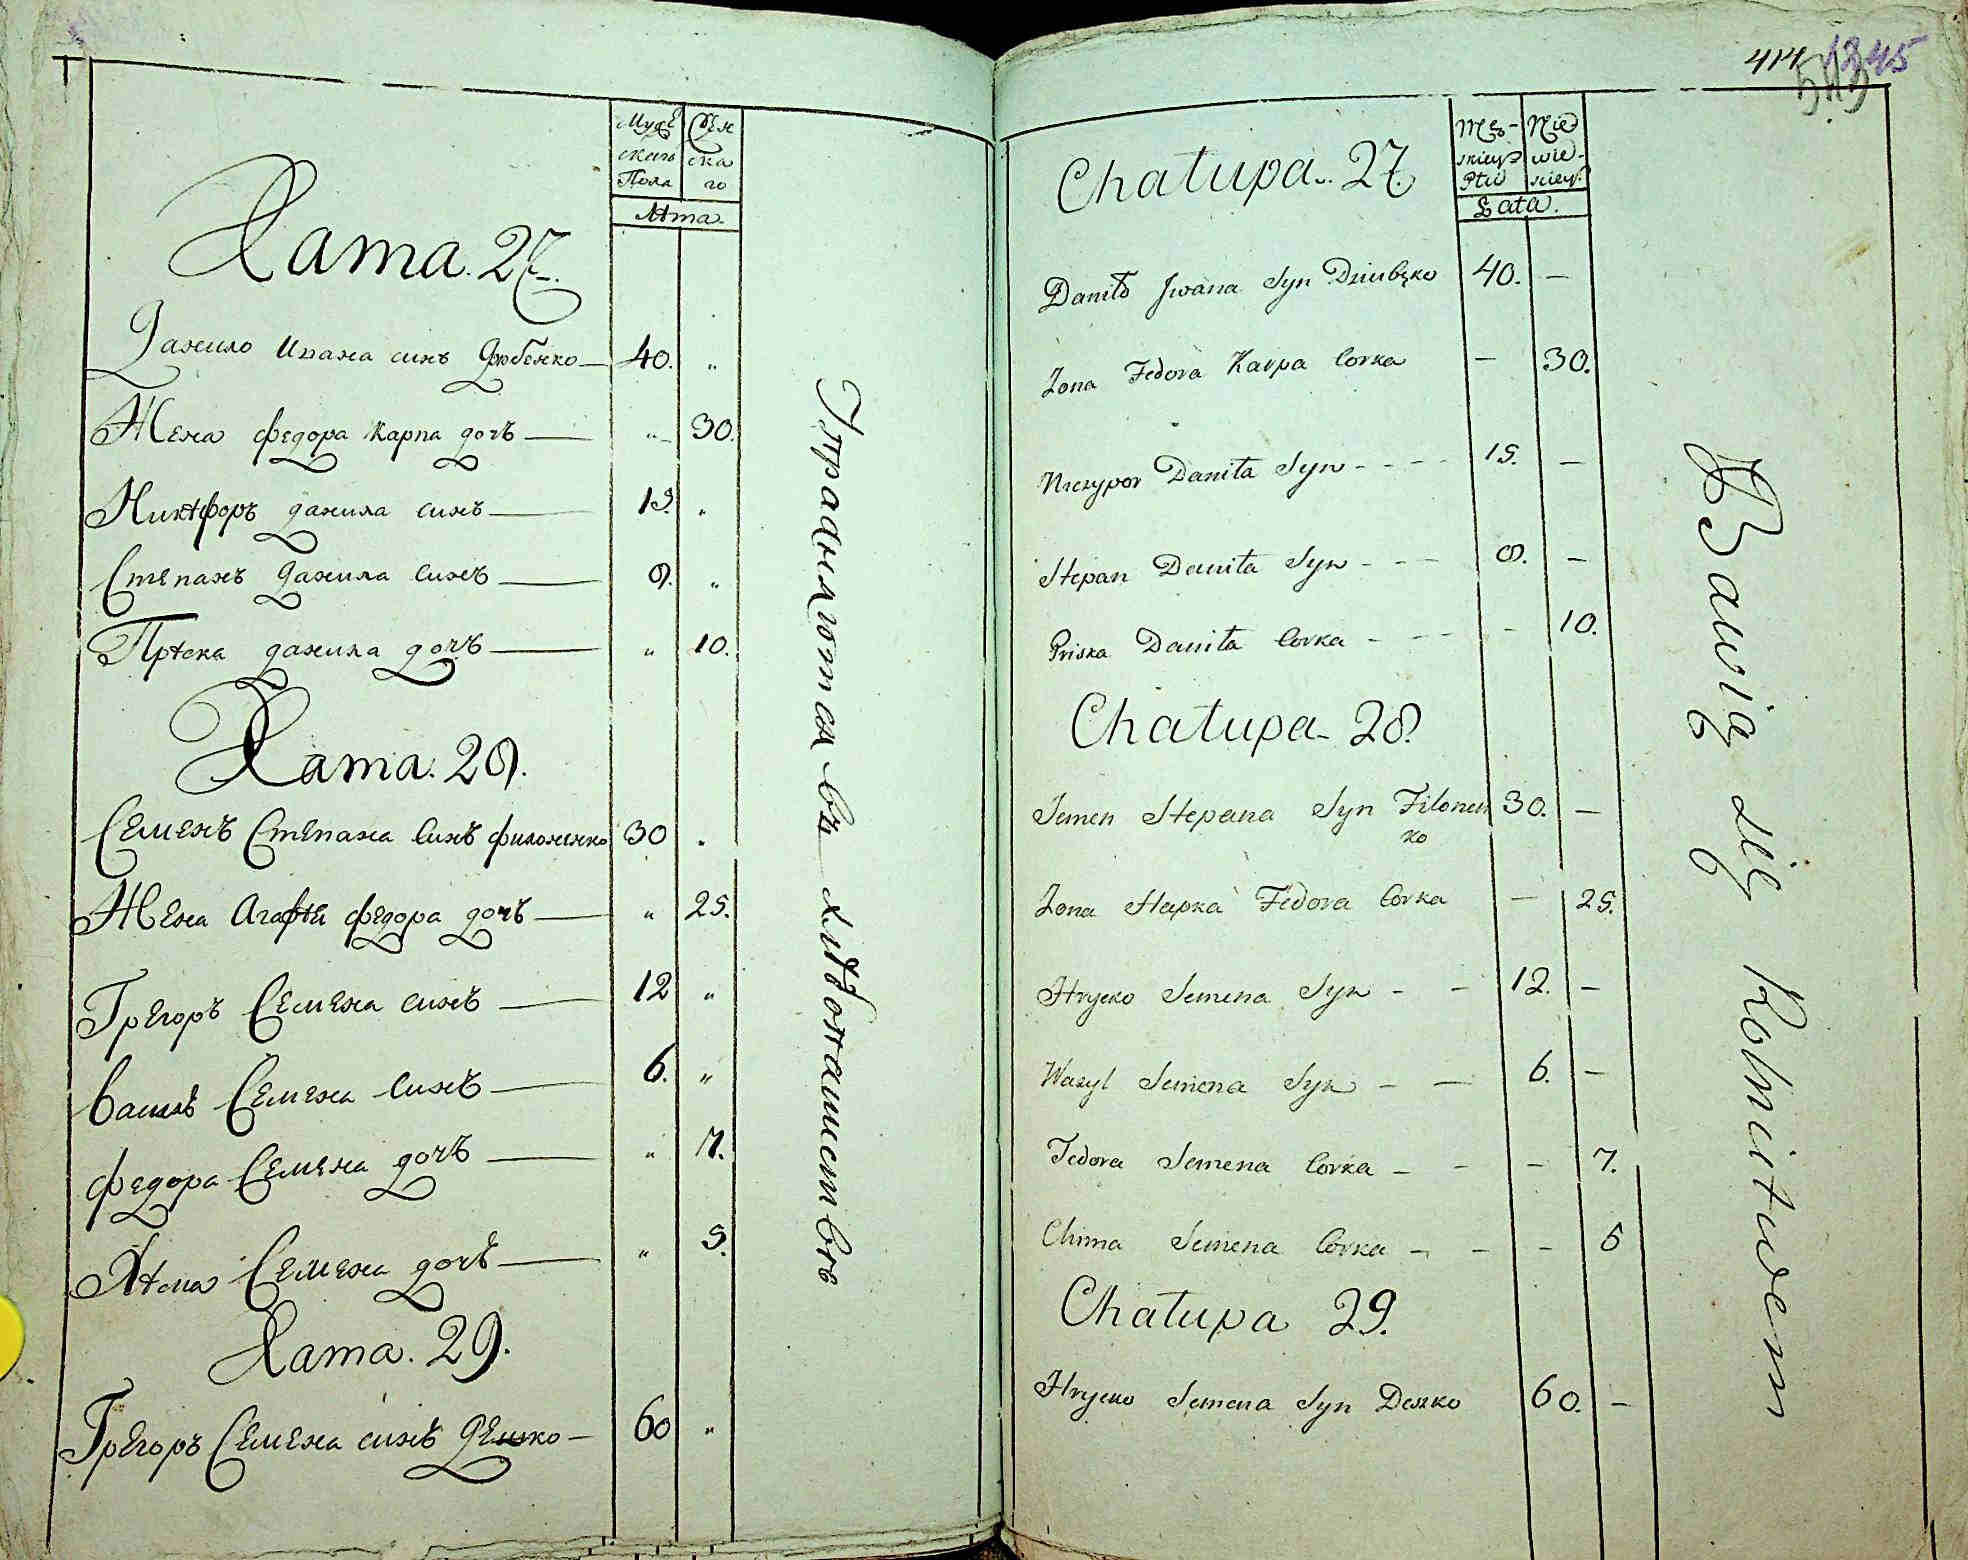 Мужескаго Пола
Женскаго
Лѣта.
Хата. 27.
Данило Ивана синъ Дзюбенко — 40. „
Жена федора Карпа дочъ — „ 30.
Никифоръ данила синъ — 15. „
Степанъ данила синъ — 8. „
Прѣска данила дочъ — „ 10.
Хата. 28.
Семенъ Степана Синъ филоненко 30 „
Жена Агафѣя федора дочъ — „ 25.
Грегоръ Семена синъ — 12 „
Василъ Семена синъ — 6. „
федора Семена дочъ — „ 7.
Семена дочъ — „ 5.
Хата. 29.
Грегоръ Семена синъ Дешко — 60 „
въ хлѣбопашествѣ
414 1345
513
Męzskiey Płci
Niewieściey.
Lata.
Chałupa. 27.
Daniło Jwana Syn Dziubęko 40. —
Zona Fedora Karpa Corka — 30.
Niczypor Daniła Syn - - - - 15. —
Stepan Daniła Syn - - - 8. —
Priska Daniła Corka - - - - 10.
Chałupa - 28.
Semen Stepana Syn Filonen 30. —
ko
Zona Hapka Fedora Corka — 25.
Hrycko Semena Syn - - 12. —
Wasyl Semena Syn - — 6. —
Fedora Semena Corka - - - 7.
Chima Semena Corka - - - 5
Chałupa 29.
Hrycko Semena Syn Deszko 60. —
Bawią się Rolnictwem